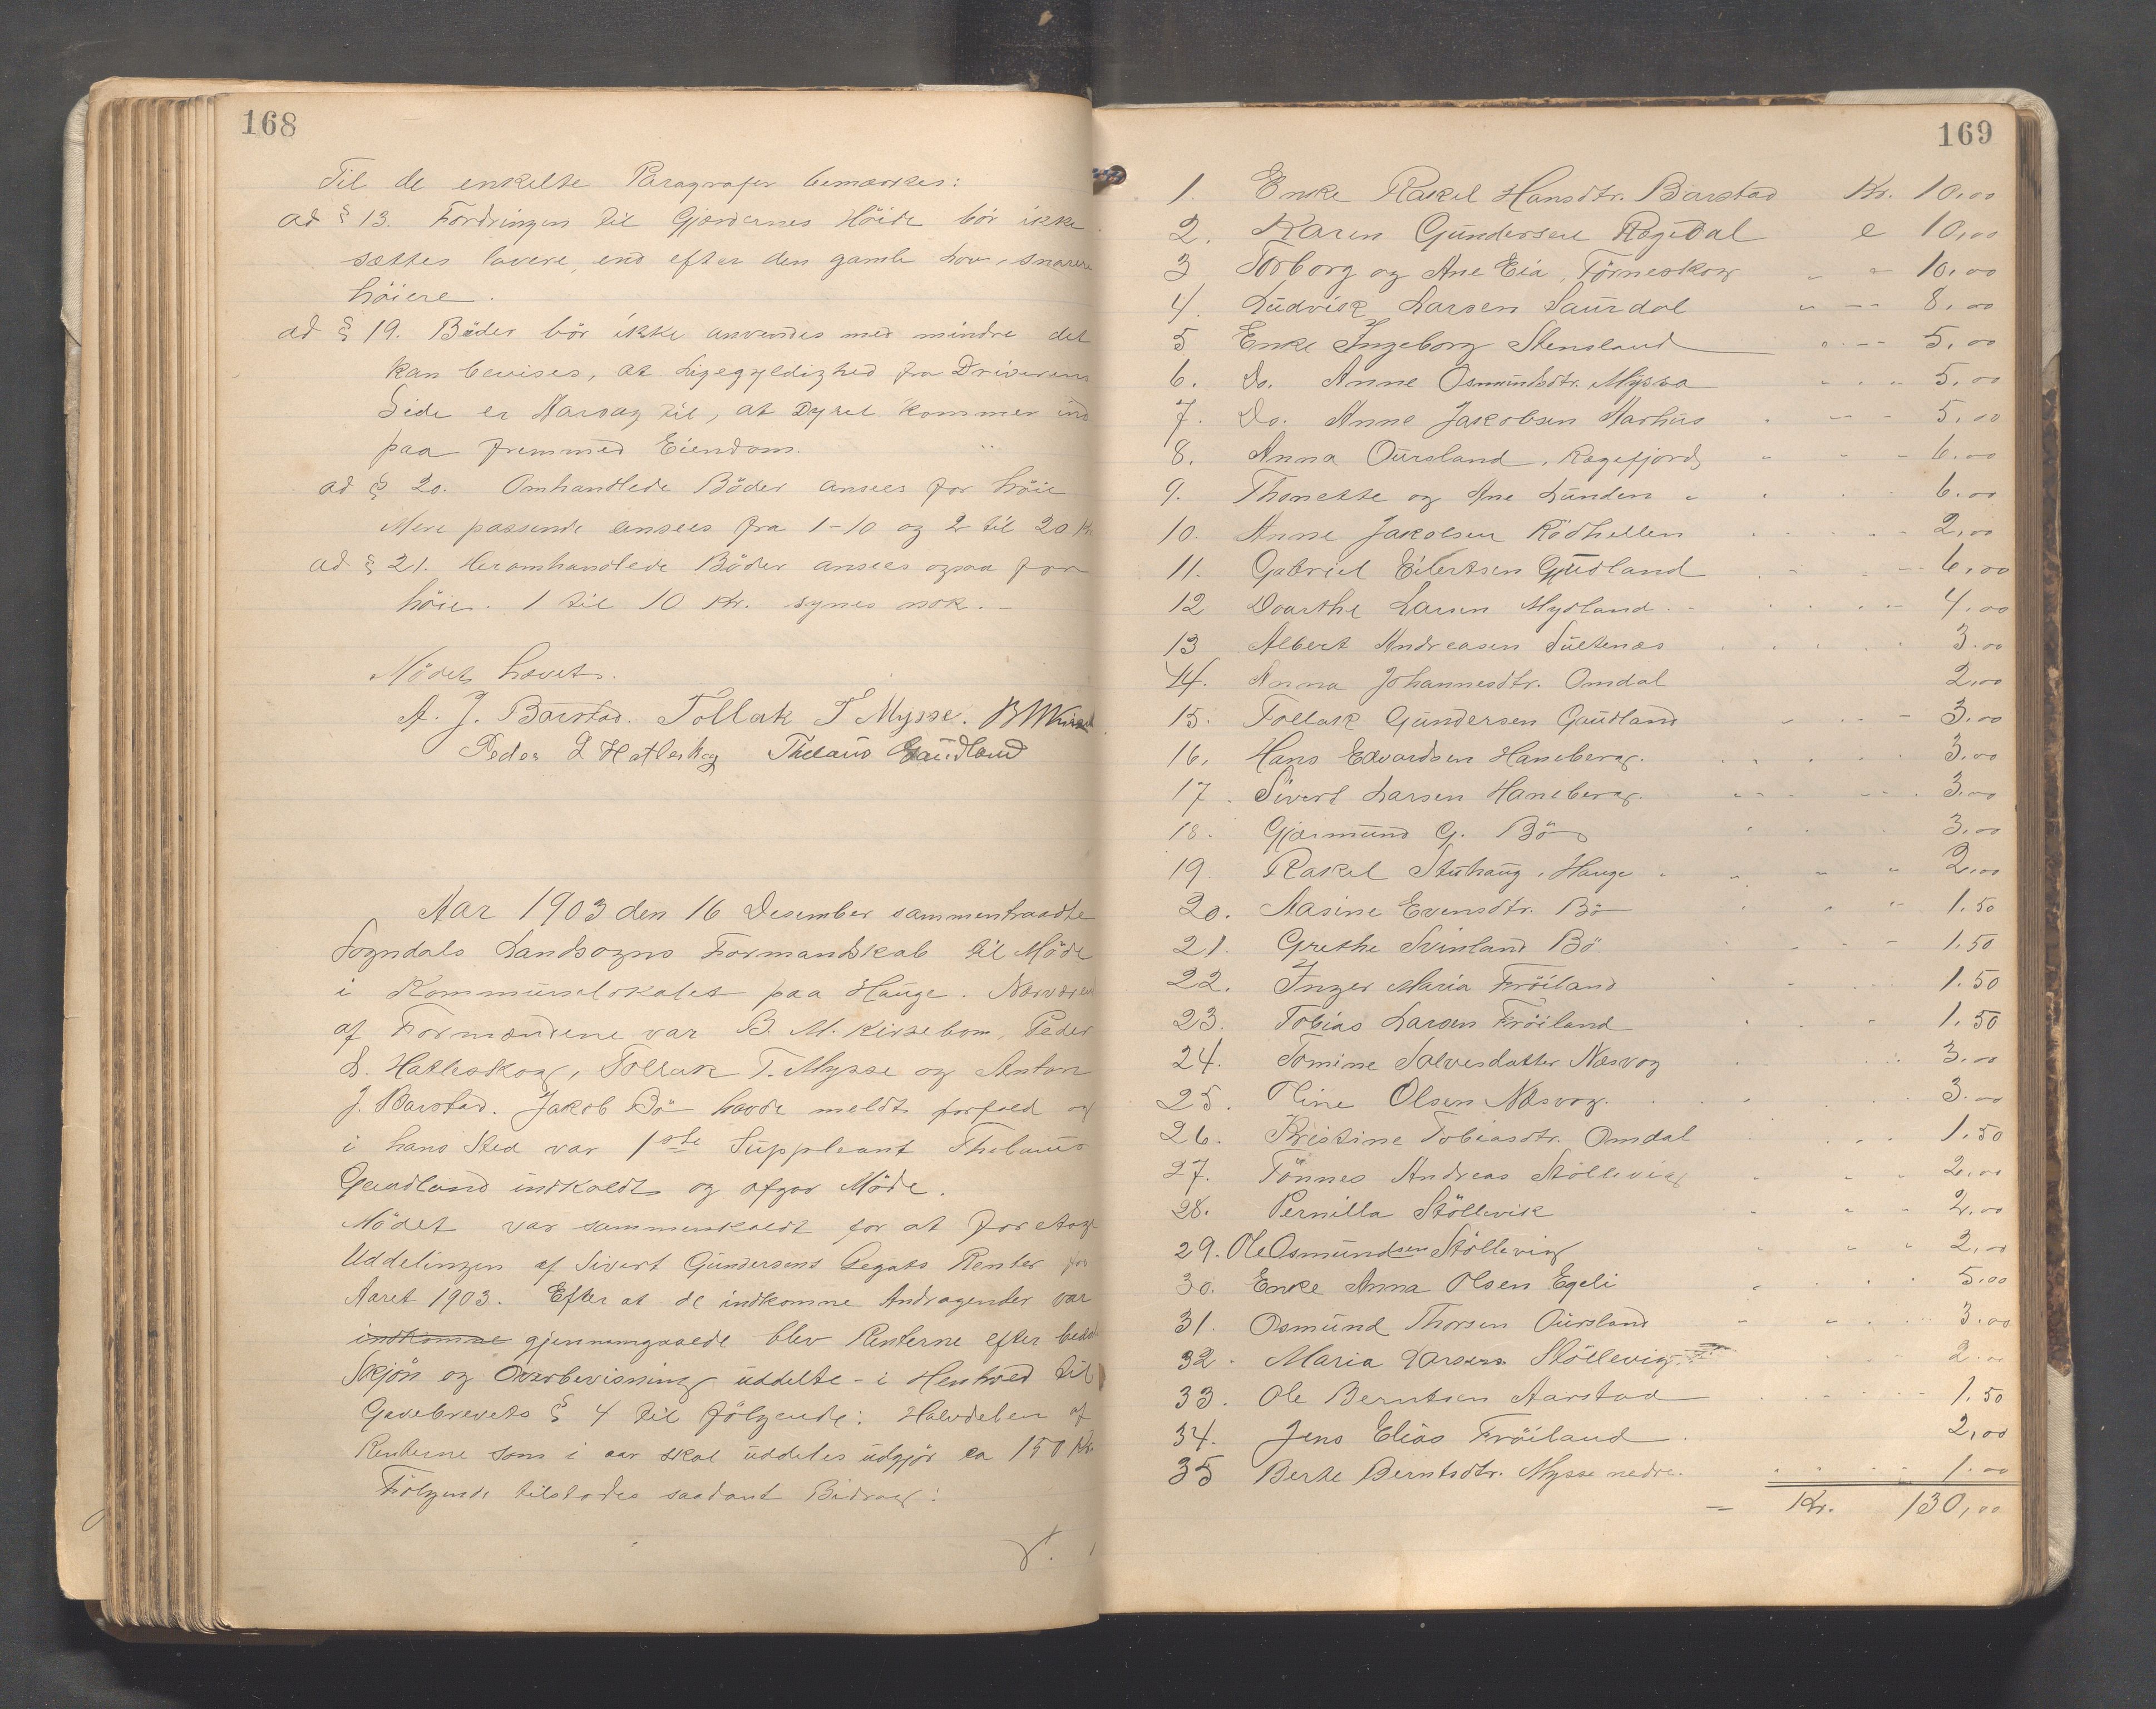 168
Til de enkelte Paragrafer bemærkes:
ad § 13. Fordringen til Gjærdernes Höide bör ikke
sættes lavere, end efter den gamle Lov, snarere
höiere.
ad § 19. Böder bör ikke anvendes med mindre det
kan bevises, at Ligegyldighed fra Driverens
Side er Aarsag til, at Dyret kommer ind
paa fremmed Eiendom.
ad § 20. Omhandlede Böder ansees for höie
Mere passende ansees fra 1-10 og 2 til 20 Kr
ad § 21. Heromhandlede Böder ansees ogsaa for
höie. 1 til 10 Kr. synes nok. -
Mödet hævet.
A. J. Barstad. Tollak T Mysse. B M Kirseb
Peder L Hatleskog Thelaus Gaudland
Aar 1903 den 16 Desember sammentraadte
Sogndals Landsogns Formandskab til Möde
i Kommunelokalet paa Hauge. Nærværend
af Formændene var B. M. Kirsebom, Peder
L. Hatleskog, Tollak T. Mysse og Anton
J. Barstad. Jakob Bö havde meldt forfald og
i hans Sted var 1ste Suppleant Thelaus
Gaudland indkaldt og afgav Möde.
Mödet var sammenkaldt for at foretage
Uddelingen af Sivert Gundersens Legats Renter for
Aaret 1903. Efter at de indkomne Andragender var
indkomne gjennemgaaede blev Renterne efter bedste
Skjön og Overbevisning uddelte - i Henhold til
Gavebrevets § 4 til fölgende: Halvdelen af
Renterne som i aar skal uddeles udgjör ca 150 Kr.
Fölgende tilstodes saadant Bidrag:
169
1. Enke Rakel Hansdtr. Barstad Kr. 10,00
2. Karen Gundersen Rægedal " 10,00
3 Torborg og Ane Eia, Törneskog " " 10,00
4. Ludvik Larsen Saurdal " - - 8,00
5 Enke Ingeborg Stensland " - - 5,00
6. Do. Anne Osmundsdtr. Myssa " " " 5,00
7. Do. Anne Jakobsen Aarhus . - - 5,00
8. Anna Oursland, Rægefjord " - - 6,00
9. Thonette og Ane Lunden " . . . 6,00
10. Anne Jakobsen Rödhellen . . . . - 2,00
11. Gabriel Eilertsen Gudland . - . . - 6,00
12 Doarthe Larsen Mydland. - . . . - 4,00
13 Albert Andreasen Sultenæs . . . . . 3,00
14. Anna Johannesdtr. Omdal 2,00
15. Tollak Gundersen Gaudland - . . - 3,00
16. Hans Edvardsen Haneberg. . . . . . 3,00
17. Sivert Larsen Haneberg. - - - - . 3,00
18. Gjærmund G. Bö . . . 3,00
19. Rakel Stuhaug, Hauge " " " " 2,00
20. Aasine Evensdtr. Bö . " " 1,50
21. Grethe Svinland Bö. . . . - 1,50
22. Inger Maria Fröiland . . . . 1.50
23. Tobias Larsen Fröiland . . - 1,50
24. Tomine Salvesdatter Næsvog . . . 3,00
25. Thine Olsen Næsvog. . . . . . 3,00
26. Kristine Tobiasdtr. Omdal . . . 1.50
27. Tönnes Andreas Stöllevig . . . 2,00
28. Pernilla Stöllevik . " - 2,00
29. Ole Osmundsen Stöllevig " " " 2,00
30. Enke Anna Olsen Egeli . . . . 5,00
31. Osmund Thorsen Oursland " " . . 3,00
32. Maria Larsen Stöllevig . . . 2,00
33. Ole Berntsen Aarstad . . . . - 1.50
34. Jens Elias Fröiland . 2,00
35 Berte Berntsdtr. Mysse nedre. . . . . 1.00
= Kr. 130,00